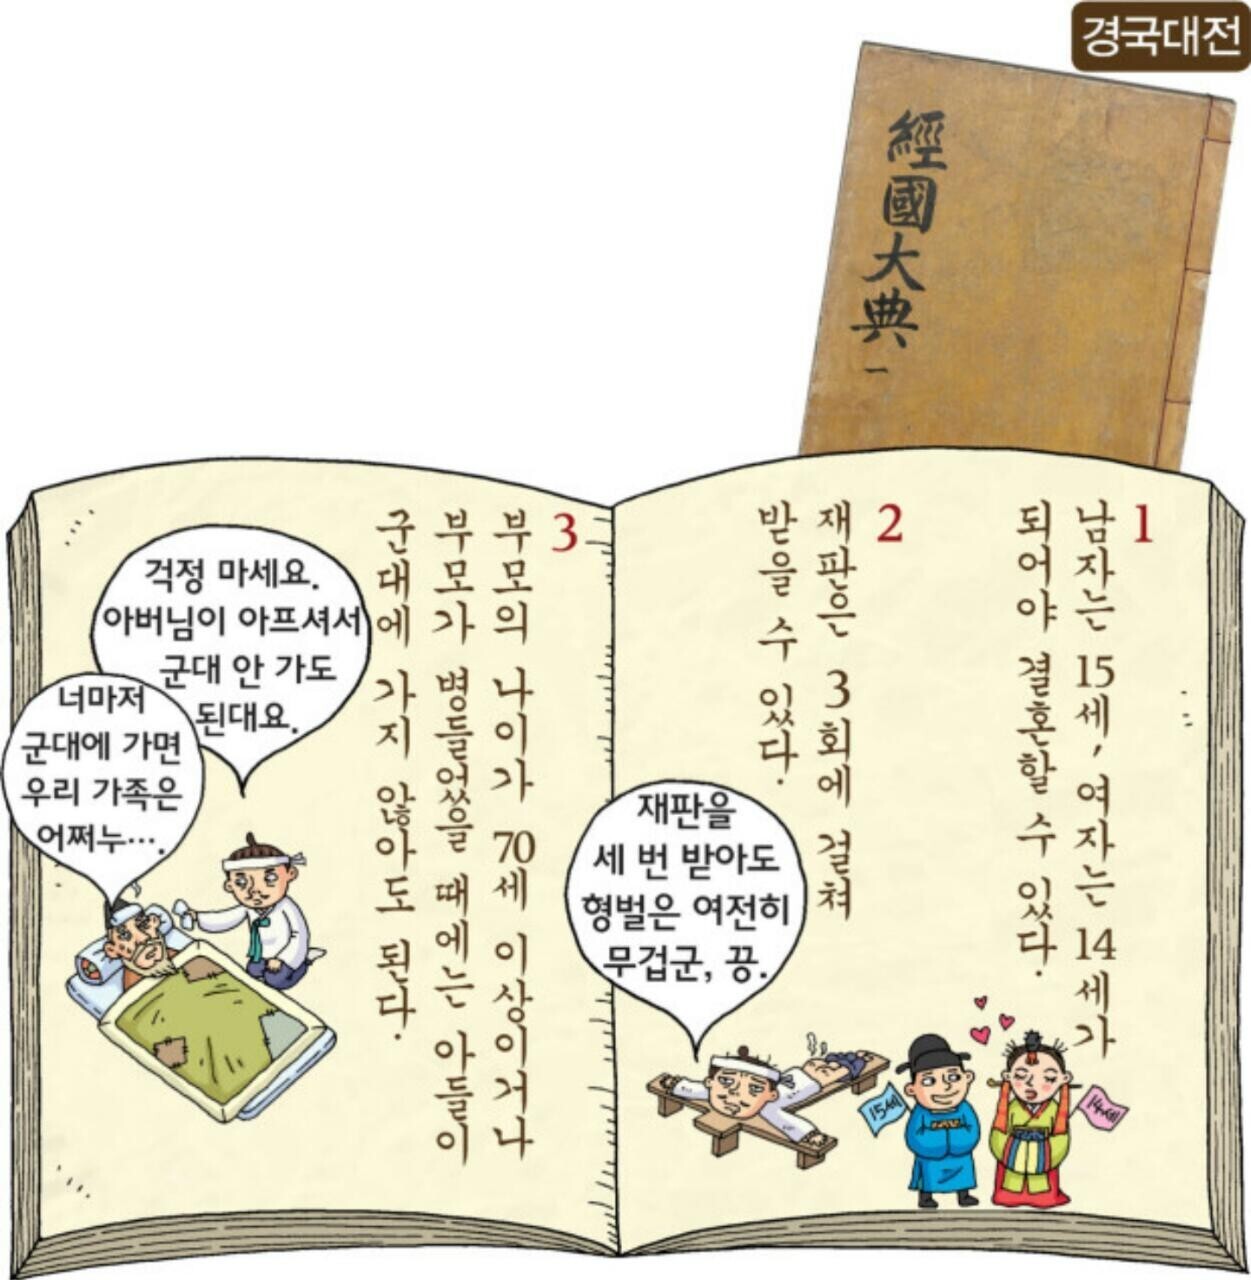 경국대전
經國大典
一
1
남자는 15세, 여자는 14세가
되어야 결혼할 수 있다.
2
재판은 3회에 걸쳐
받을 수 있다.
재판을
세 번 받아도
형벌은 여전히
무겁군, 끙.
15세
14세
3
부모의 나이가 70세 이상이거나
부모가 병들었을 때에는 아들이
군대에 가지 않아도 된다.
걱정 마세요.
아버님이 아프셔서
군대 안 가도
된대요.
너마저
군대에 가면
우리 가족은
어쩌누….